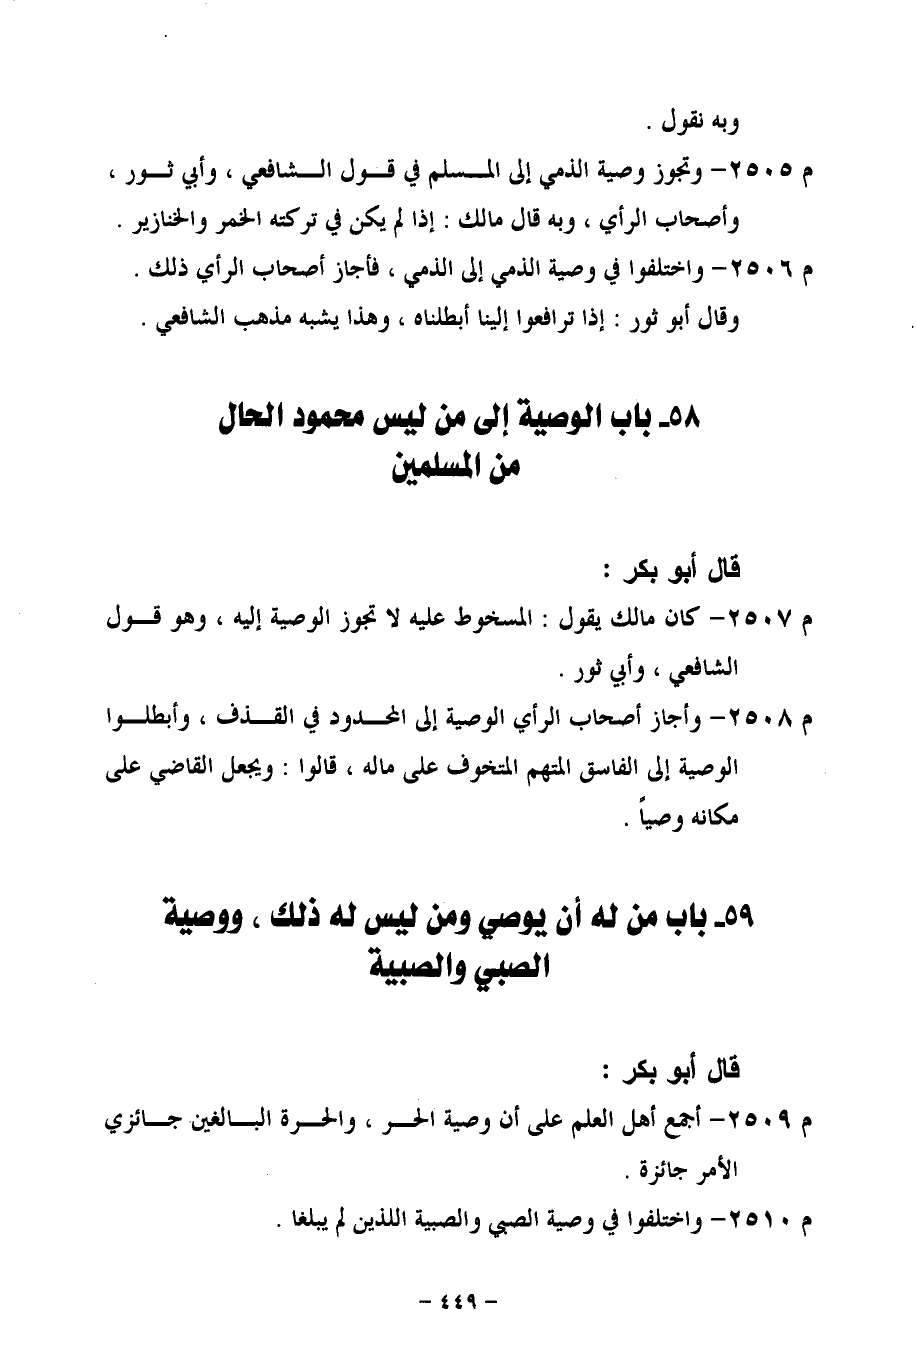 وبه نقول .
م ٢٥٠٥- وتجوز وصية الذمي إلى المسلم في قول الشافعي ، وأبي ثور ،
وأصحاب الرأي ، وبه قال مالك : إذا لم يكن في تركته الخمر والخنازير .
م ٢٥٠٦- واختلفوا في وصية الذمي إلى الذمي ، فأجاز أصحاب الرأي ذلك .
وقال أبو ثور : إذا ترافعوا إلينا أبطلناه ، وهذا يشبه مذهب الشافعي .
٥٨ـ باب الوصية إلى من ليس محمود الحال
من المسلمين
قال أبو بكر :
م ٢٥٠٧- كان مالك يقول : المسخوط عليه لا تجوز الوصية إليه ، وهو قول
الشافعي ، وأبي ثور .
م ٢٥٠٨- وأجاز أصحاب الرأي الوصية إلى المحدود في القذف ، وأبطلوا
الوصية إلى الفاسق المتهم المتخوف على ماله ، قالوا : ويجعل القاضي على
مكانه وصياً .
٥٩ـ باب من له أن يوصي ومن ليس له ذلك ، ووصية
الصبي والصبية
قال أبو بكر :
م ٢٥٠٩- أجمع أهل العلم على أن وصية الحر ، والحرة البالغين جائزي
الأمر جائزة .
م ٢٥١٠- واختلفوا في وصية الصبي والصبية اللذين لم يبلغا .
- ٤٤٩ -